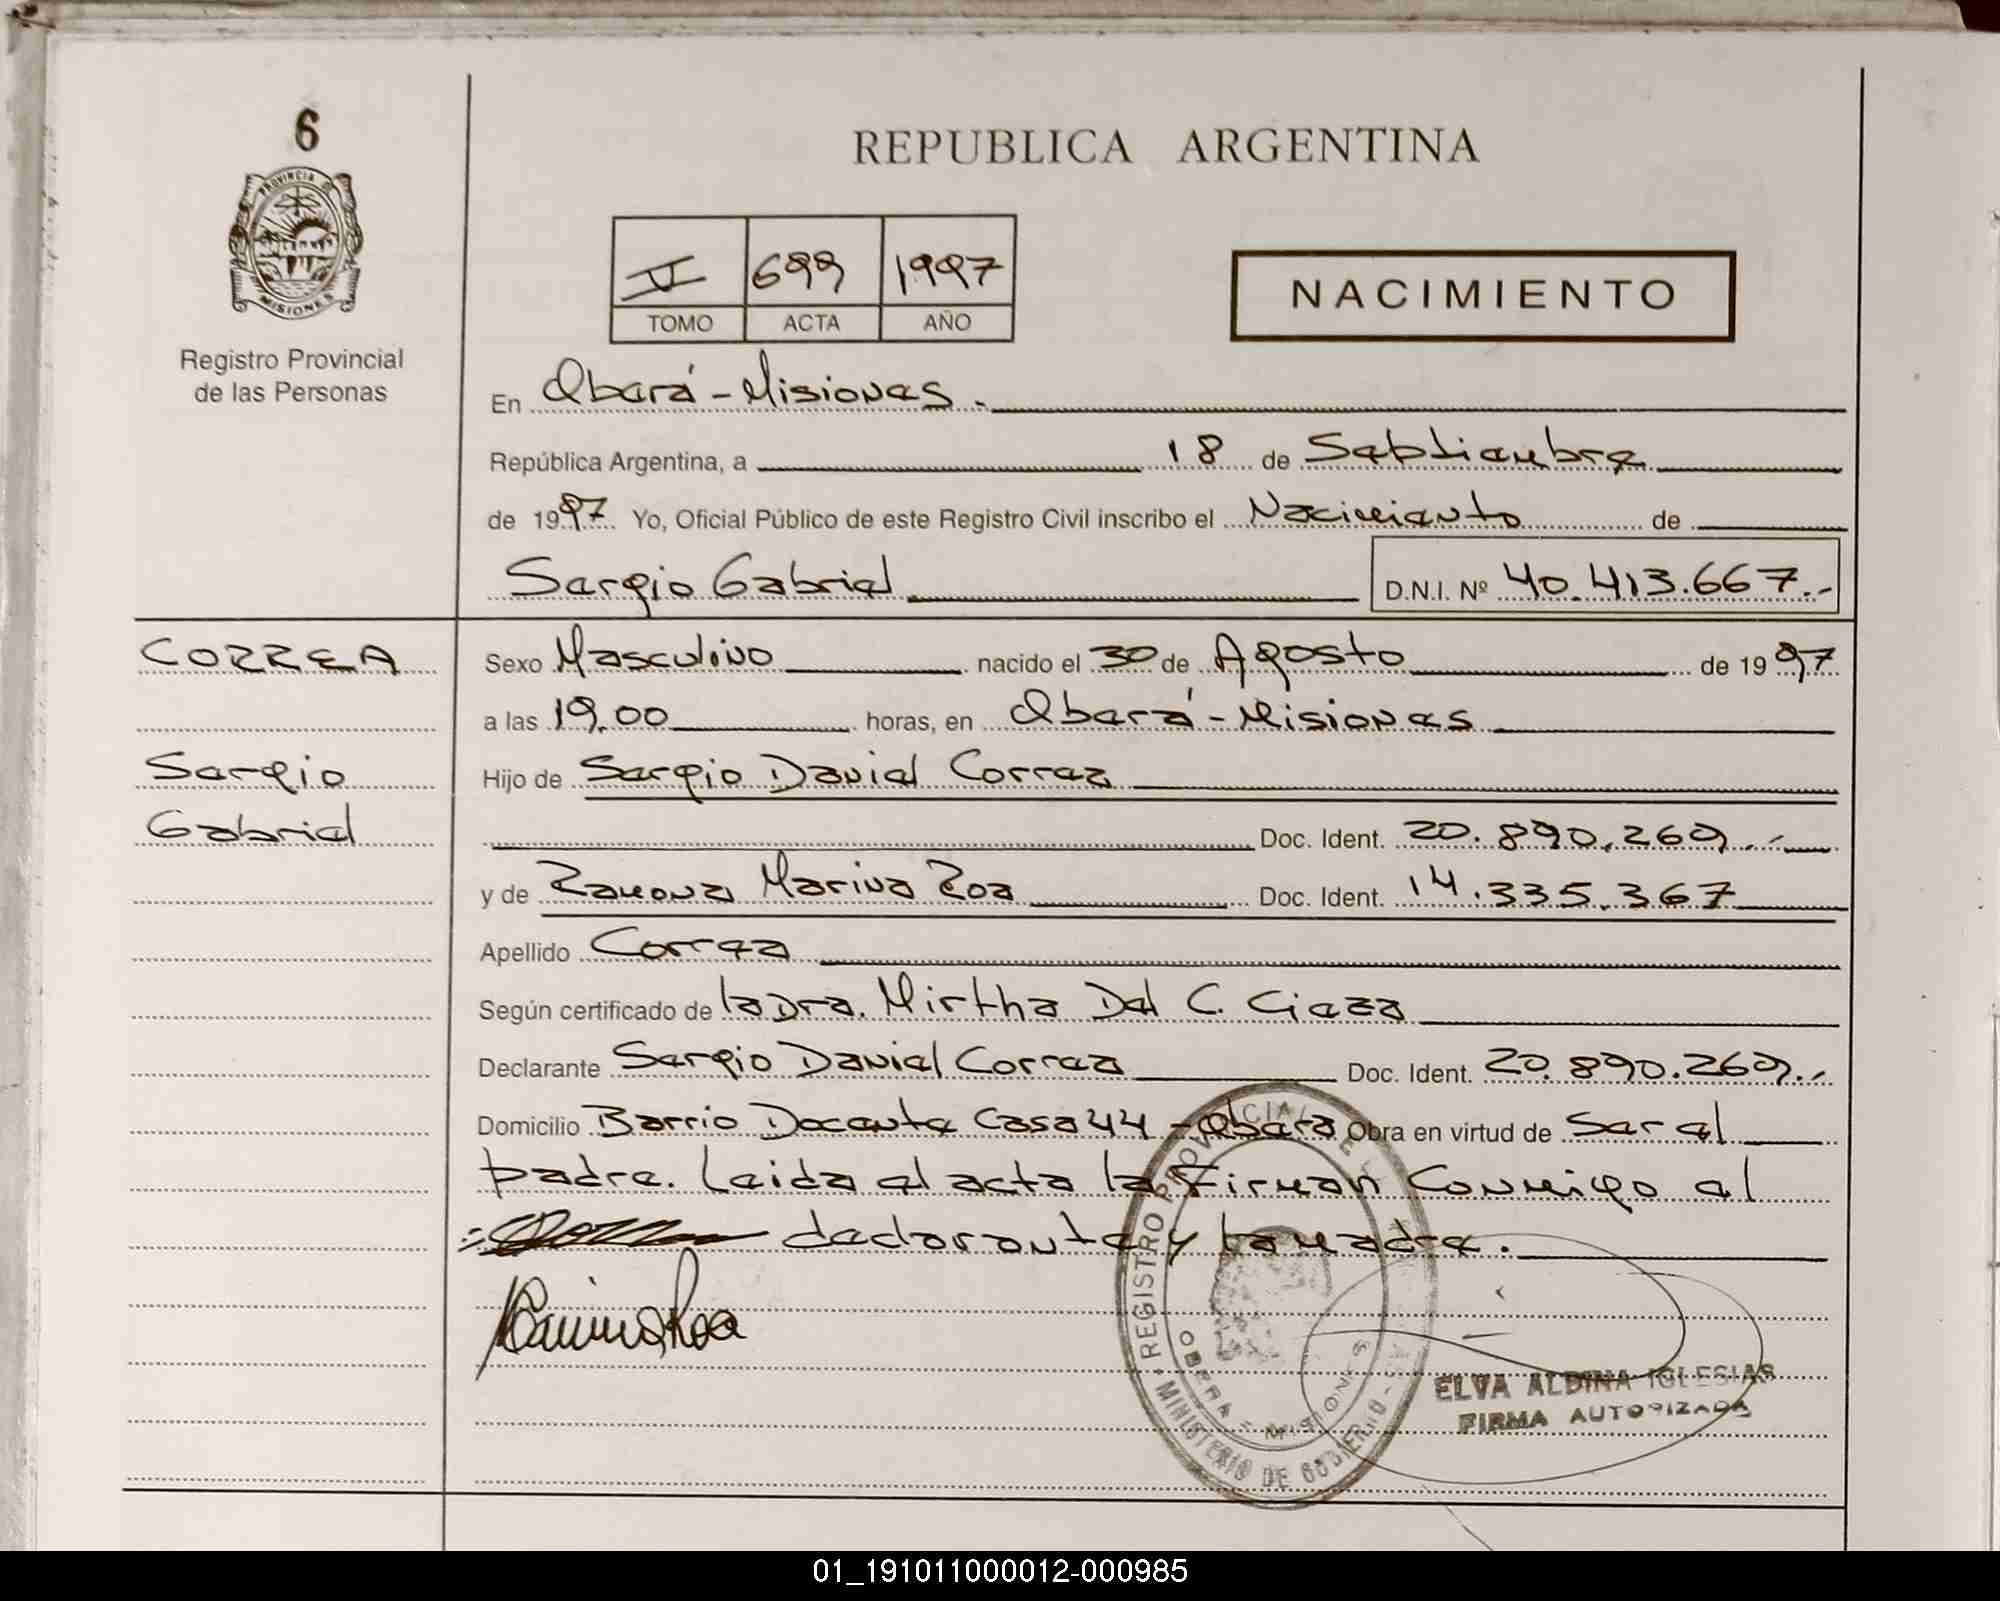 6
PROVINCIA DE
MISIONES
Registro Provincial
de las Personas
REPUBLICA ARGENTINA
699 1997
TOMO ACTA AÑO
NACIMIENTO
En Oberá - Misiones.
República Argentina, a 18 de Septiembre
de 1997 Yo, Oficial Público de este Registro Civil inscribo el Nacimiento de
Sergio Gabriel D.N.I. Nº 40.413.667.-
CORREA
Sergio
Gabriel
Sexo Masculino nacido el 30 de Agosto de 1997
a las 19,00 horas, en Oberá - Misiones
Hijo de Sergio Daniel Correa
Doc. Ident. 20.890.269.-
y de Ramona Marina Roa Doc. Ident. 14.335.367
Apellido Correa
Según certificado de la Dra. Mirtha Del C.
Declarante Sergio Daniel Correa Doc. Ident. 20.890.269.-
Domicilio Barrio Docente Casa 44 - Oberá Obra en virtud de Ser el
padre. Leida el acta la Firman Conmigo el
declarante y la madre.
REGISTRO PROVINCIAL DE LAS
MINISTERIO DE GOBIERNO
OBERA - MISIONES
ELVA ALDINA IGLESIAS
FIRMA AUTORIZADA
01_191011000012-000985